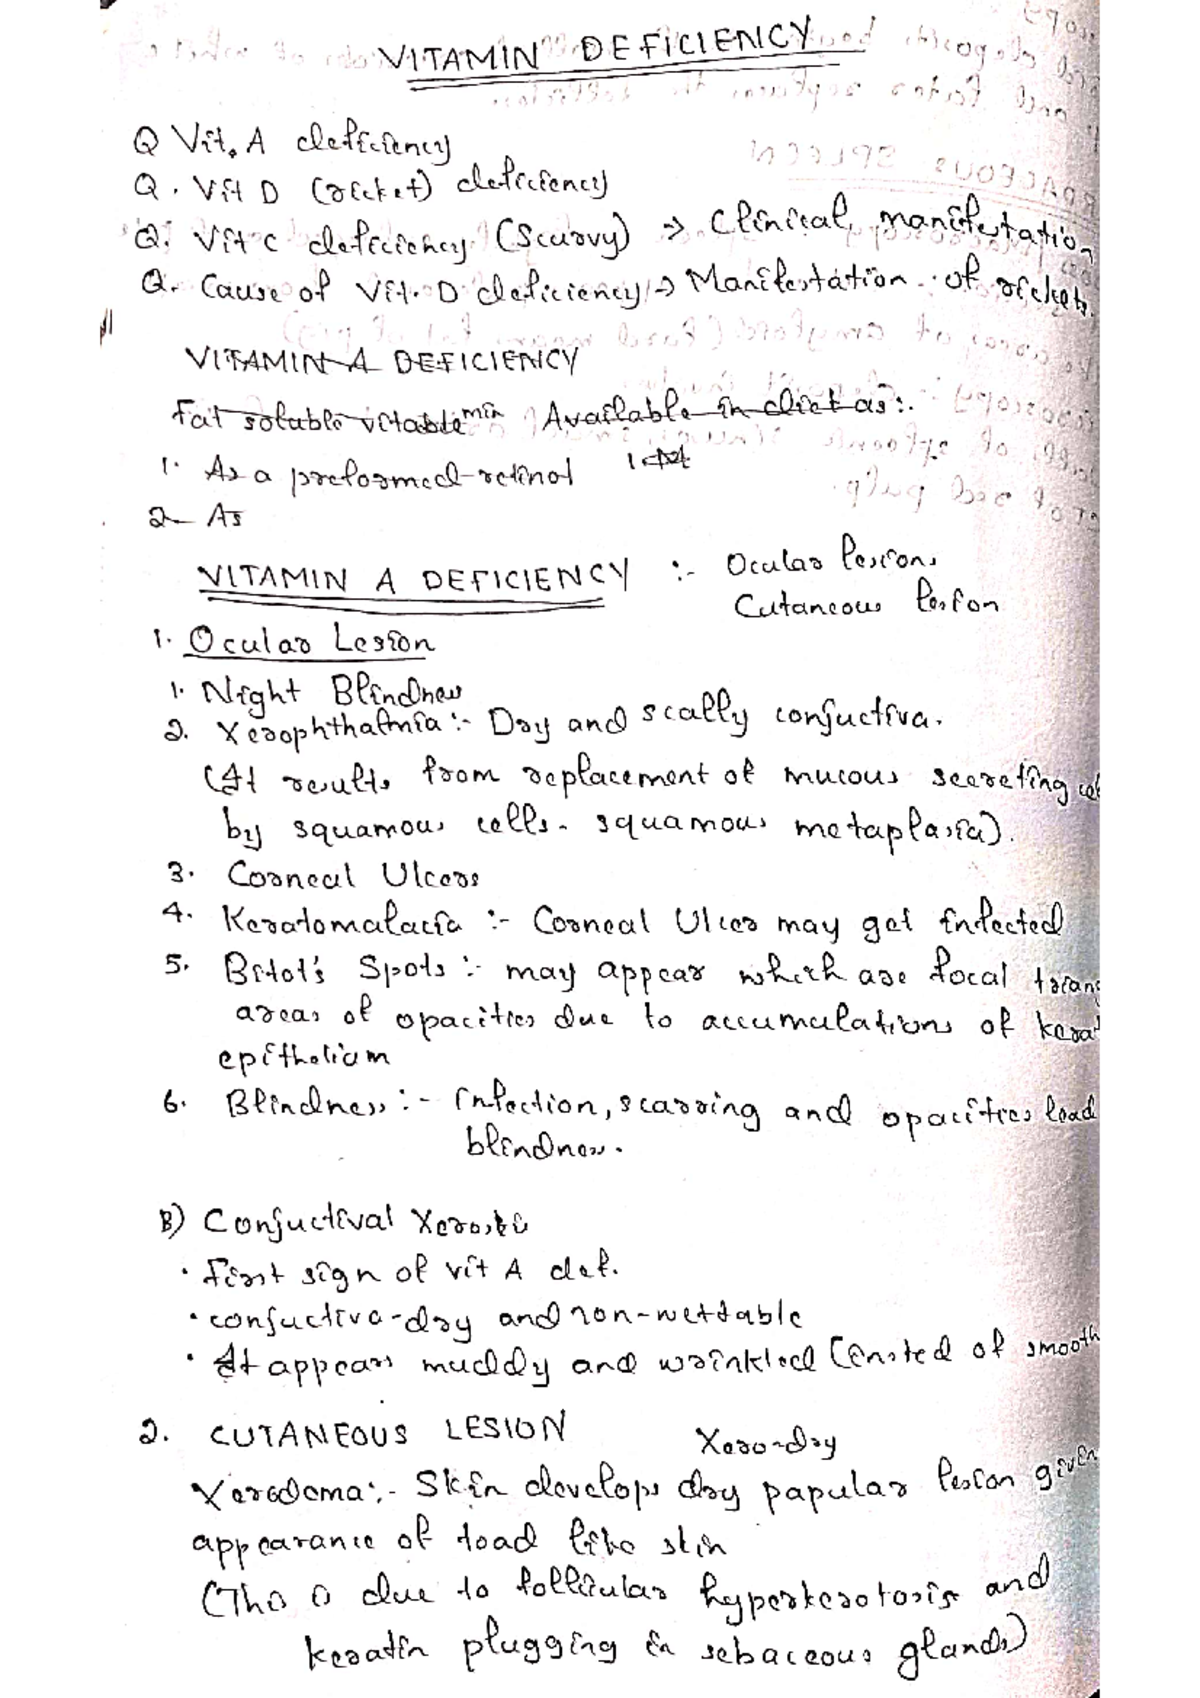 VITAMIN DEFICIENCY
Q Vit. A deficiency
Q. Vit D (ricket) deficiency
Q. Vit C deficiency (Scurvy) → Clinical manifestation
Q. Cause of Vit. D deficiency → Manifestation of rickets.
VITAMIN A DEFICIENCY
Fat soluble vitamin Available in diet as:.
1. As a preformed-retinol
2- As
VITAMIN A DEFICIENCY :- Ocular lesion,
Cutaneous lesion
1. Ocular Lesion
1. Night Blindness
2. Xerophthalmia :- Dry and scally conjuctiva.
(It results from replacement of mucous secreting cel
by squamous cells - squamous metaplasia).
3. Corneal Ulcers
4. Keratomalacia :- Corneal Ulcer may get infected
5. Bitot's Spots :- may appear which are focal triang
areas of opacities due to accumulations of kerat
epithelium
6. Blindness :- infection, scarring and opacities lead
blindness.
B) Conjuctival Xerosis
• First sign of vit A def.
• conjuctiva-dry and non-wettable
• It appears muddy and wrinkled (insted of smooth
2. CUTANEOUS LESION Xero-dry
Xeroderma:- Skin develops dry papular lesion given
appearance of toad like skin
(This is due to follicular hyperkeratosis and
keratin plugging in sebaceous glands)